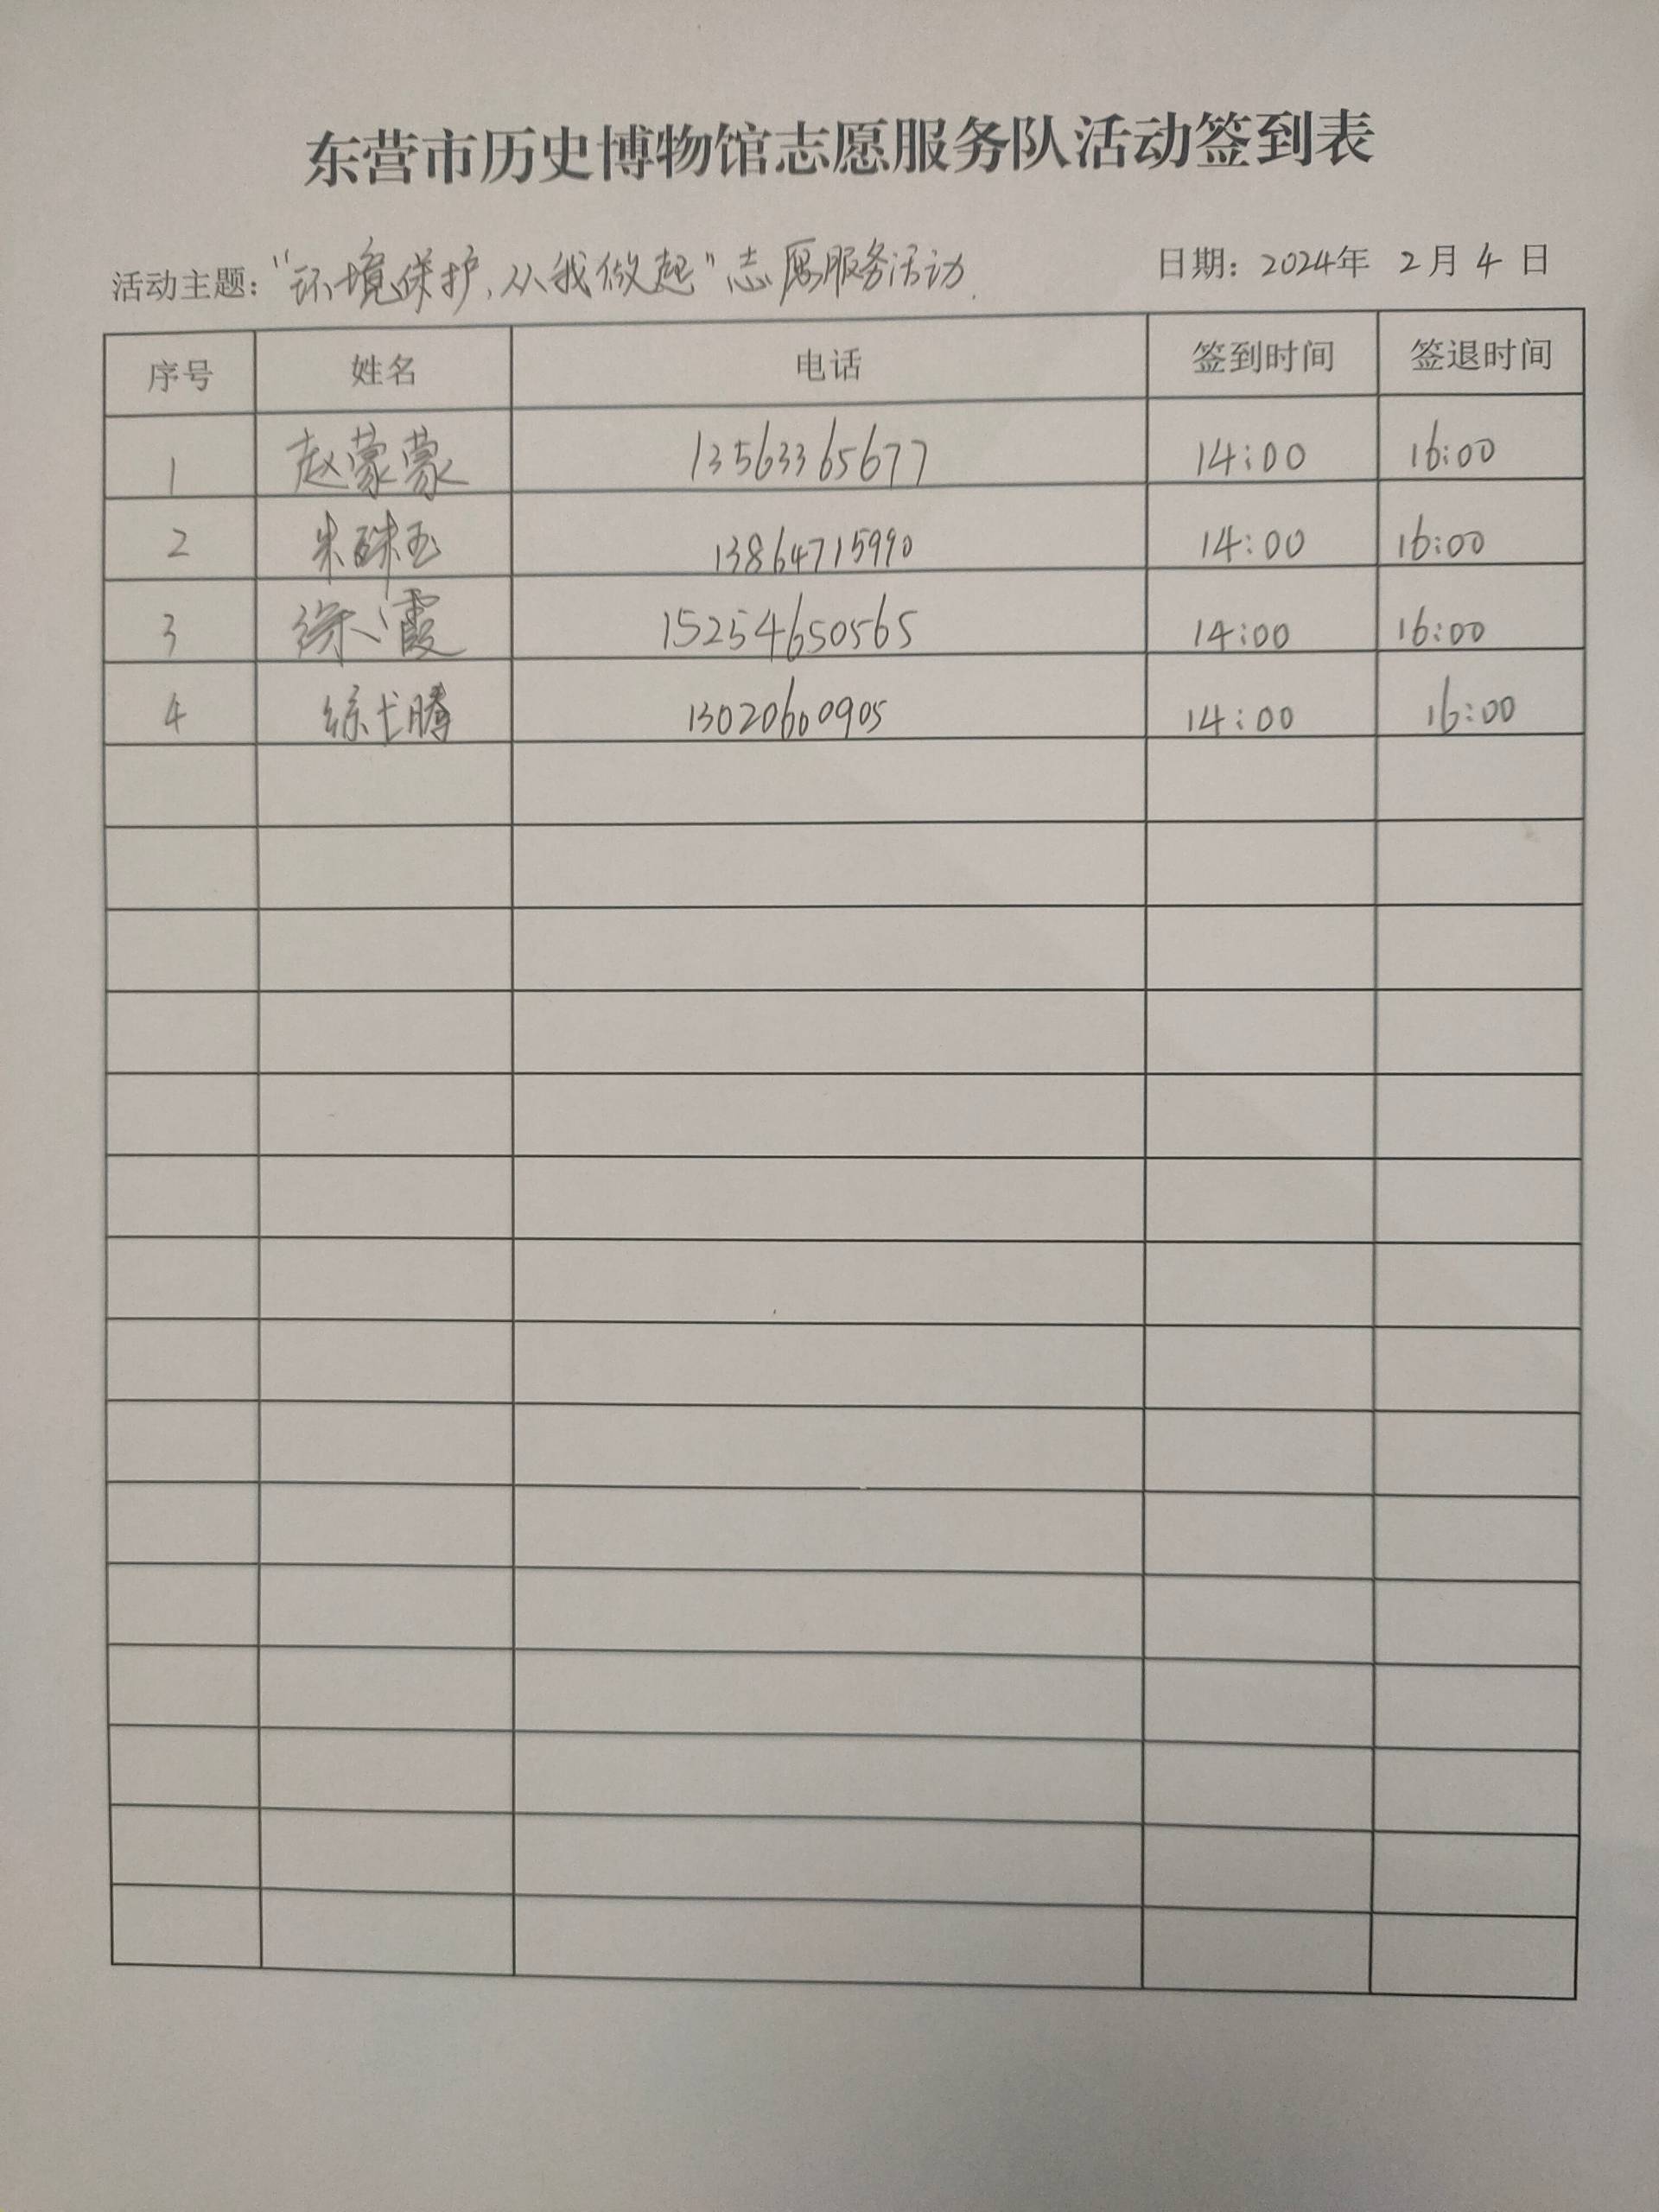 东营市历史博物馆志愿服务队活动签到表
活动主题："环境保护,从我做起"志愿服务活动. 日期：2024年 2月4日
序号 姓名 电话 签到时间 签退时间
1 赵蒙蒙 13563365677 14:00 16:00
2 13864715990 14:00 16:00
3 徐霞 15254650565 14:00 16:00
4 13020600905 14:00 16:00